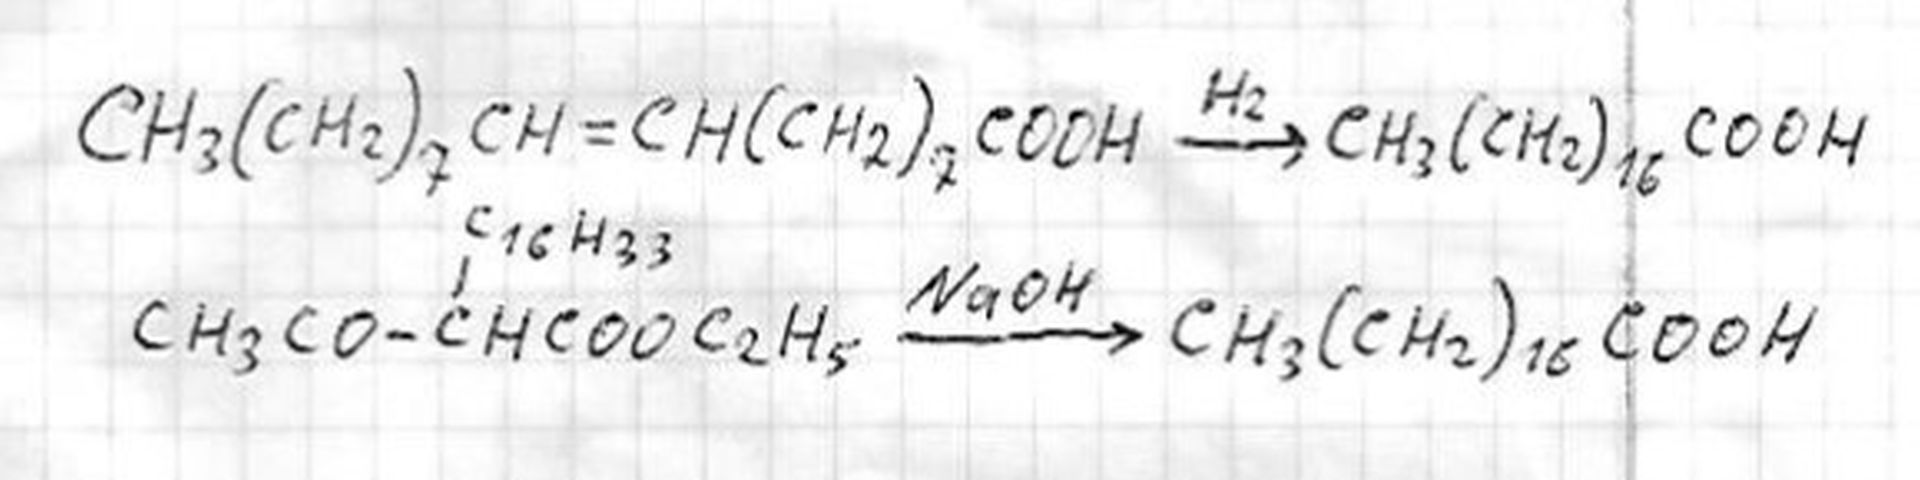 CH3(CH2)7CH=CH(CH2)7COOH H2→ CH3(CH2)16COOH
C16H33
CH3CO-CHCOOC2H5 NaOH→ CH3(CH2)16COOH